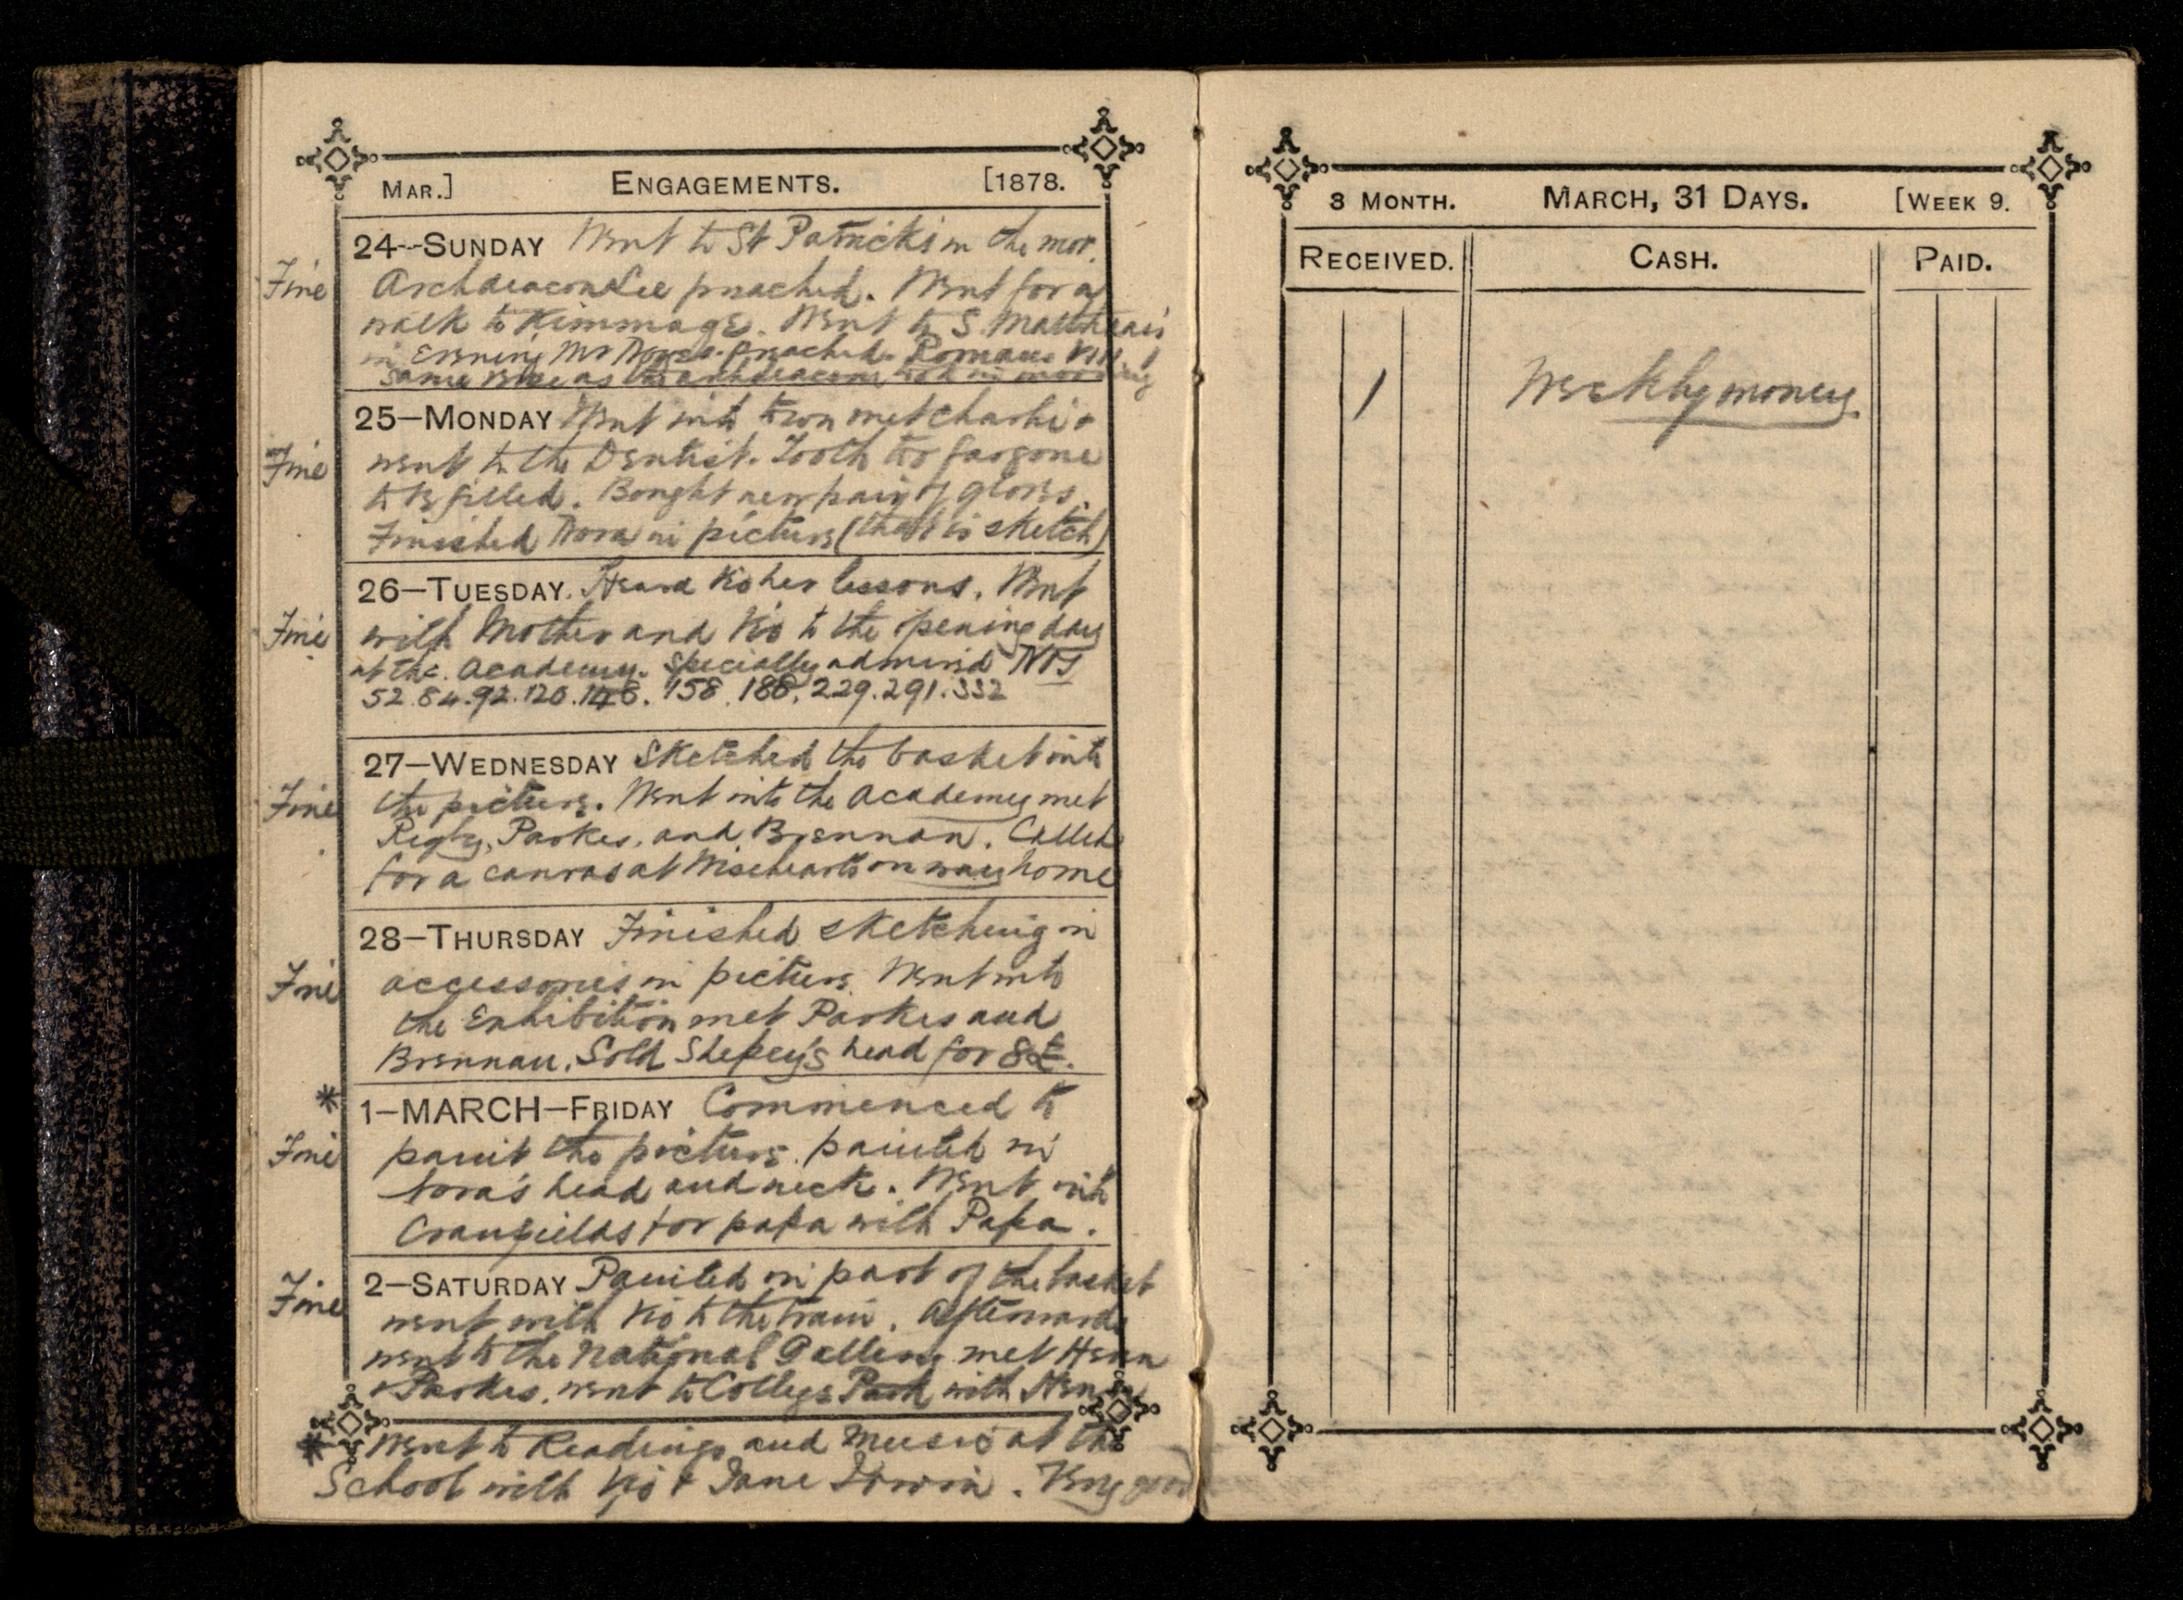 Mar.] Engagements. [1878.
24--Sunday Went to St Patrick's in the mor.
Fine Archdeacon Lee preached. Went for a
walk to Kimmage. Went to S. Matthais
in Evening Mr Noyes preached. Romans VIII. 1
same verse as the archdeacon took in morning
25—Monday Went into town met Charlie &
Fine went to the Dentist. Tooth too far gone
to be filled. Bought new pair of gloves.
Finished Nora in picture (that is sketch)
26—Tuesday. Heard Vio her lessons. Went
Fine with Mother and Vio to the opening day
at the Academy. Specially admired Nos
52.84.92.120.148.158.188.229.291.332
27—Wednesday Sketched the basket into
Fine the picture. Went into the Academy met
Rigby, Parkes, and Brennan. Called
for a canvas at Wiseheart's on way home
28—Thursday Finished sketching in
Fine accessories in picture. Went into
the Exhibition met Parkes and
Brennan. Sold Shekey's head for 8£.
* 1—MARCH—Friday Commenced to
Fine paint the picture. painted in
Nora's head and neck. Went into
Cranfields for papa with Papa.
2—Saturday Painted in part of the basket
Fine went with Vio to the train. Afterwards
went to the National Gallery met Henn
& Parkes. went to College Park with Henn
* Went to Readings and Music at the
School with Vio & Jane Irwin. Very good
3 Month. March, 31 Days. [Week 9.
Received. Cash. Paid.
1 Weekly money